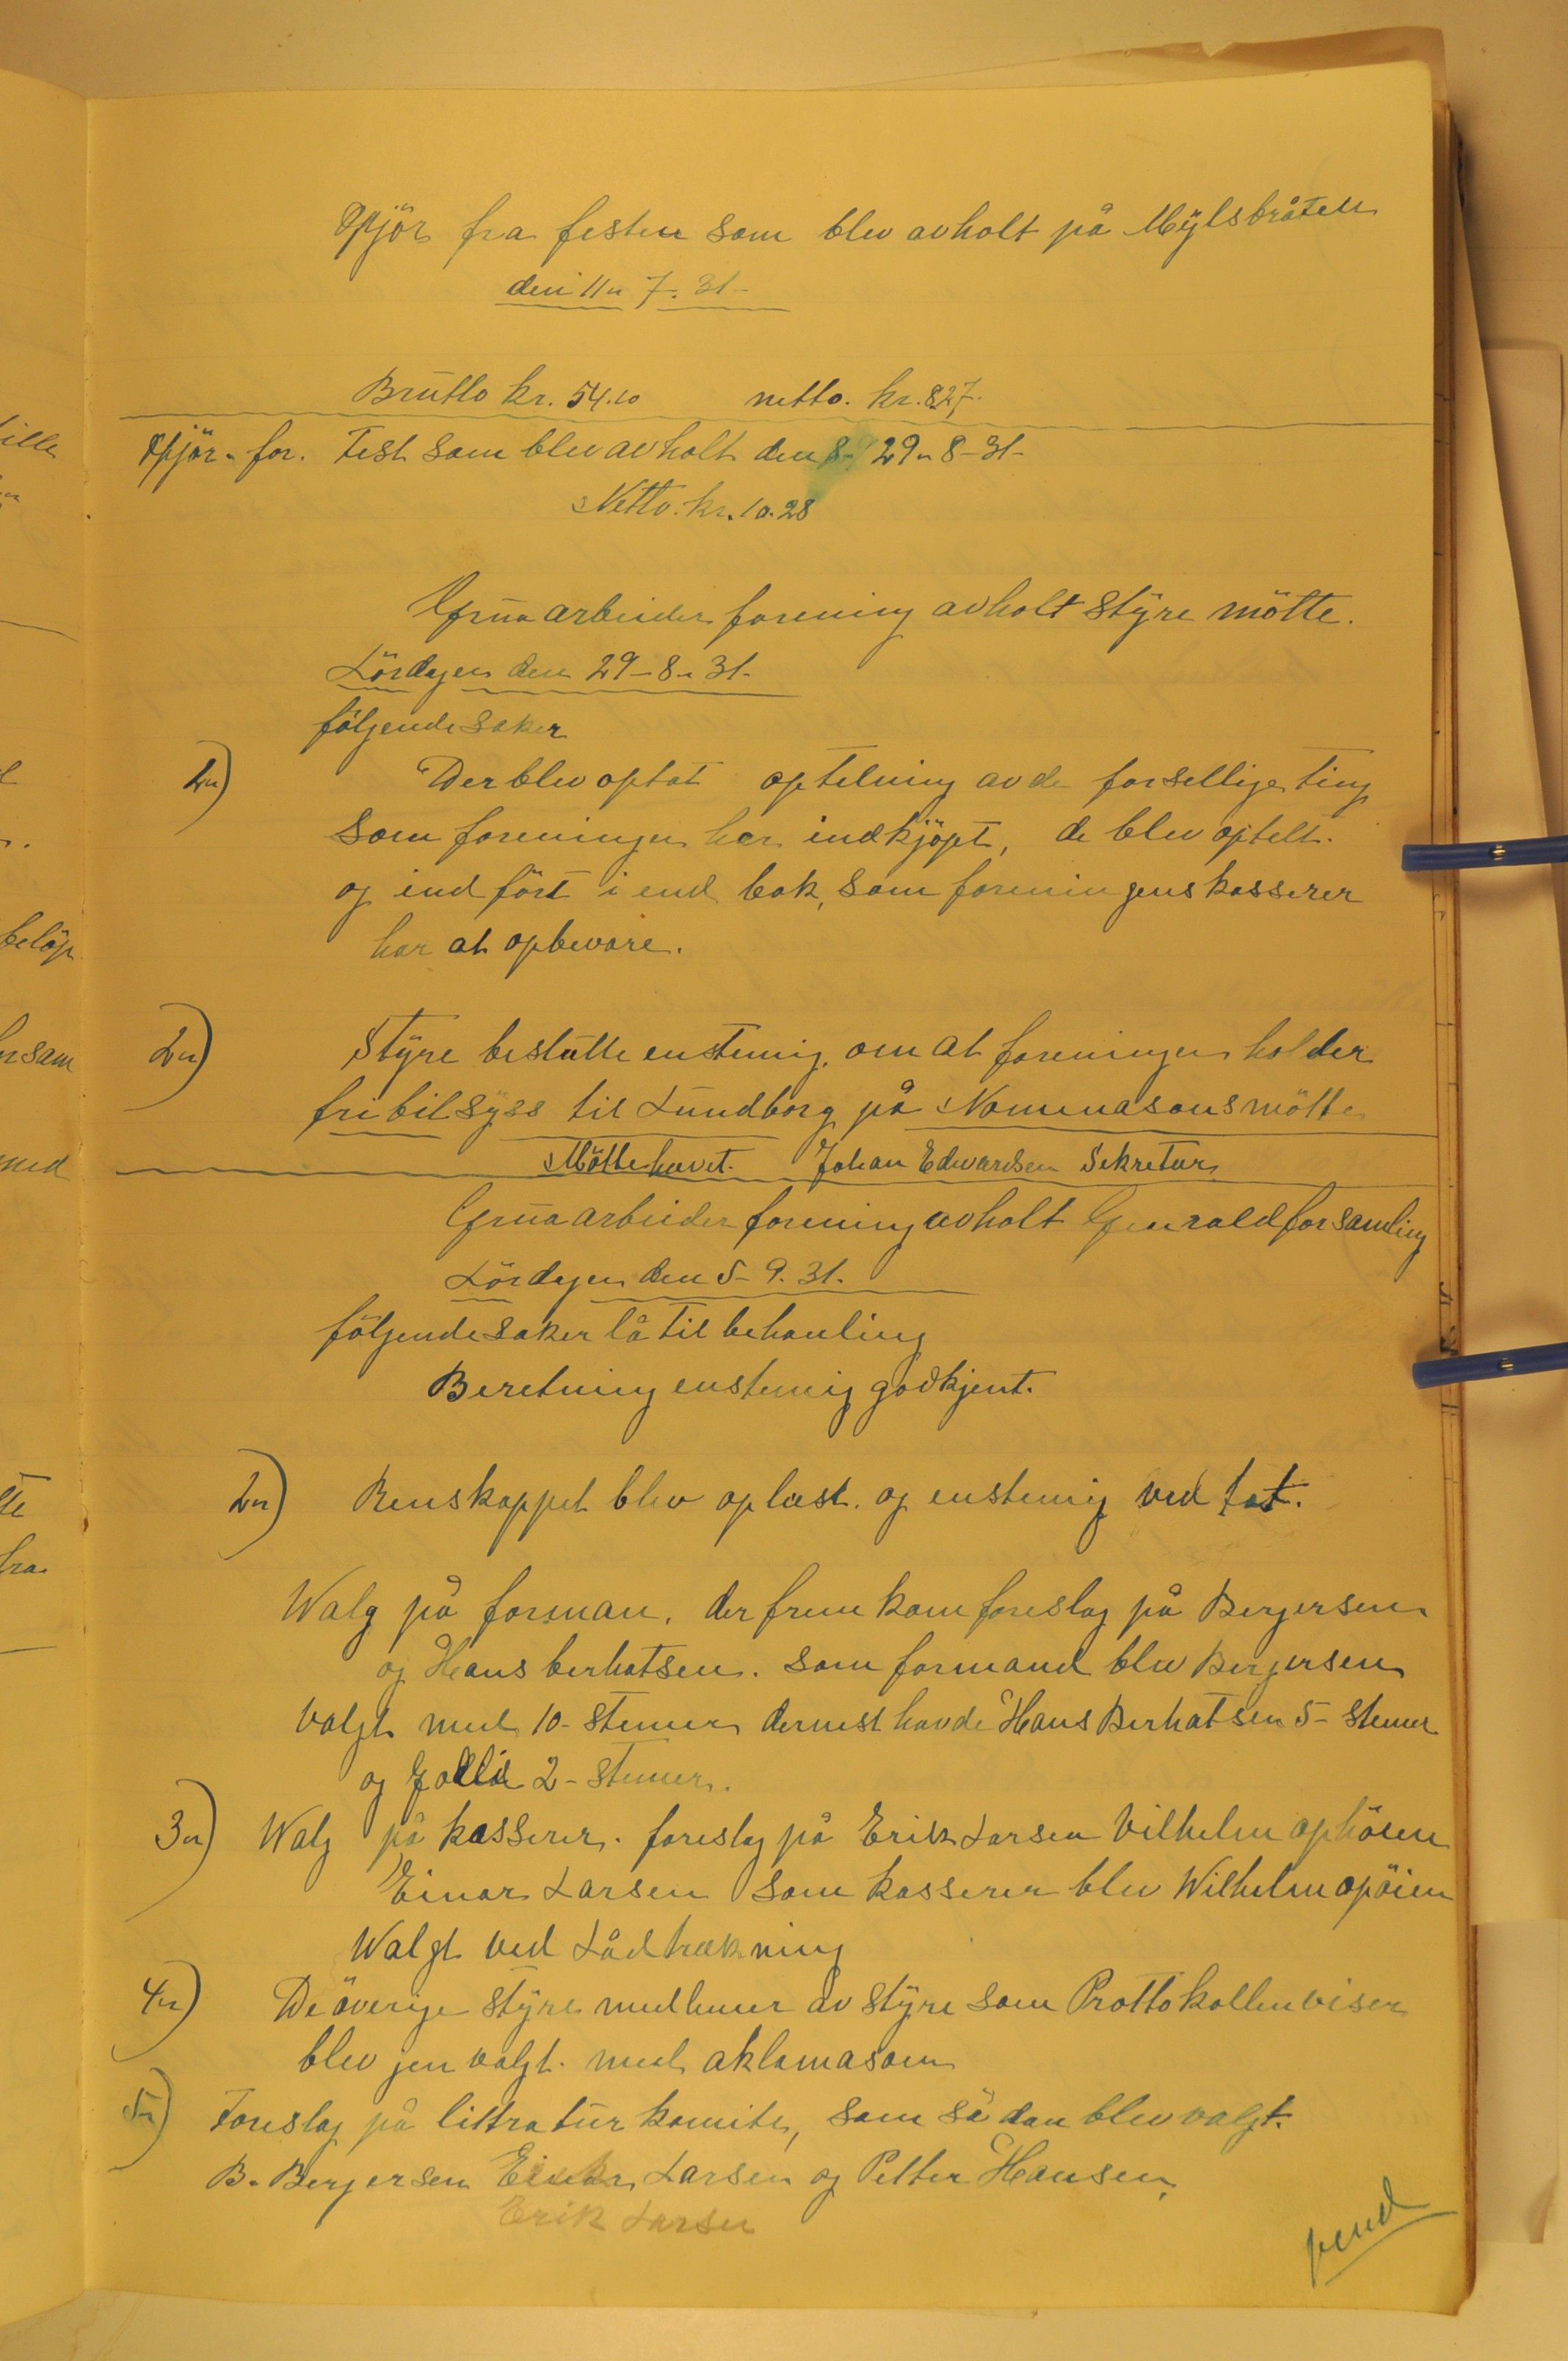 Opjör fra festen som blev avholt på Mylsbråten
den 11/ 7. 31-
Brutto kr. 54.10 netto. kr. 8.27.
Opjör. for. Fest som blev avholt den 29-8-31-
Netto. kr. 10.28
Grua arbeider forening avholt Styre mötte.
Lördagen den 29-8-31.
följende saker
1) Der blev optat optelning av de forsellige ting
som foreningen har indkjöpt, de blev optelt.
og ind fört i end bok, som foreningens kasserer
har at opbevare.
2) Styre beslutte enstemig, om at foreningen holder
fri bil syss til Lundborg på Nomenasons mötte
Mötte hævet. Johan Edvardsen Sekretær
Grua arbeider forening avholt Genrald forsamling
Lördagen den 5-9.31.
följende saker lå til behanling
Beretning enstemig godkjent.
2) Renskappet blev oplæst. og enstemig ved tat.
Walg på forman, der frem kom foreslag på Bergersen
og Hans berhatsen. som formand blev Bergersen
valgt med 10-stemer dernest havde Hans Berhatsen 5-stemer
og 2-stemer.
3) Walg på kasserer. foreslag på Erik Larsen Vilhelm ophöien
Einar Larsen som kasserer blev Wilhelm opöien
Walgt ved Lådtrækning
4) De överige styre medlemer av styre som Prottokollen viser
blev jen valgt. med aklamason
5) Foreslag på littratur komite, som sådan blev valgt.
B. Bergersen Einar Larsen og Petter Hansen.
Erik Larsen
vend